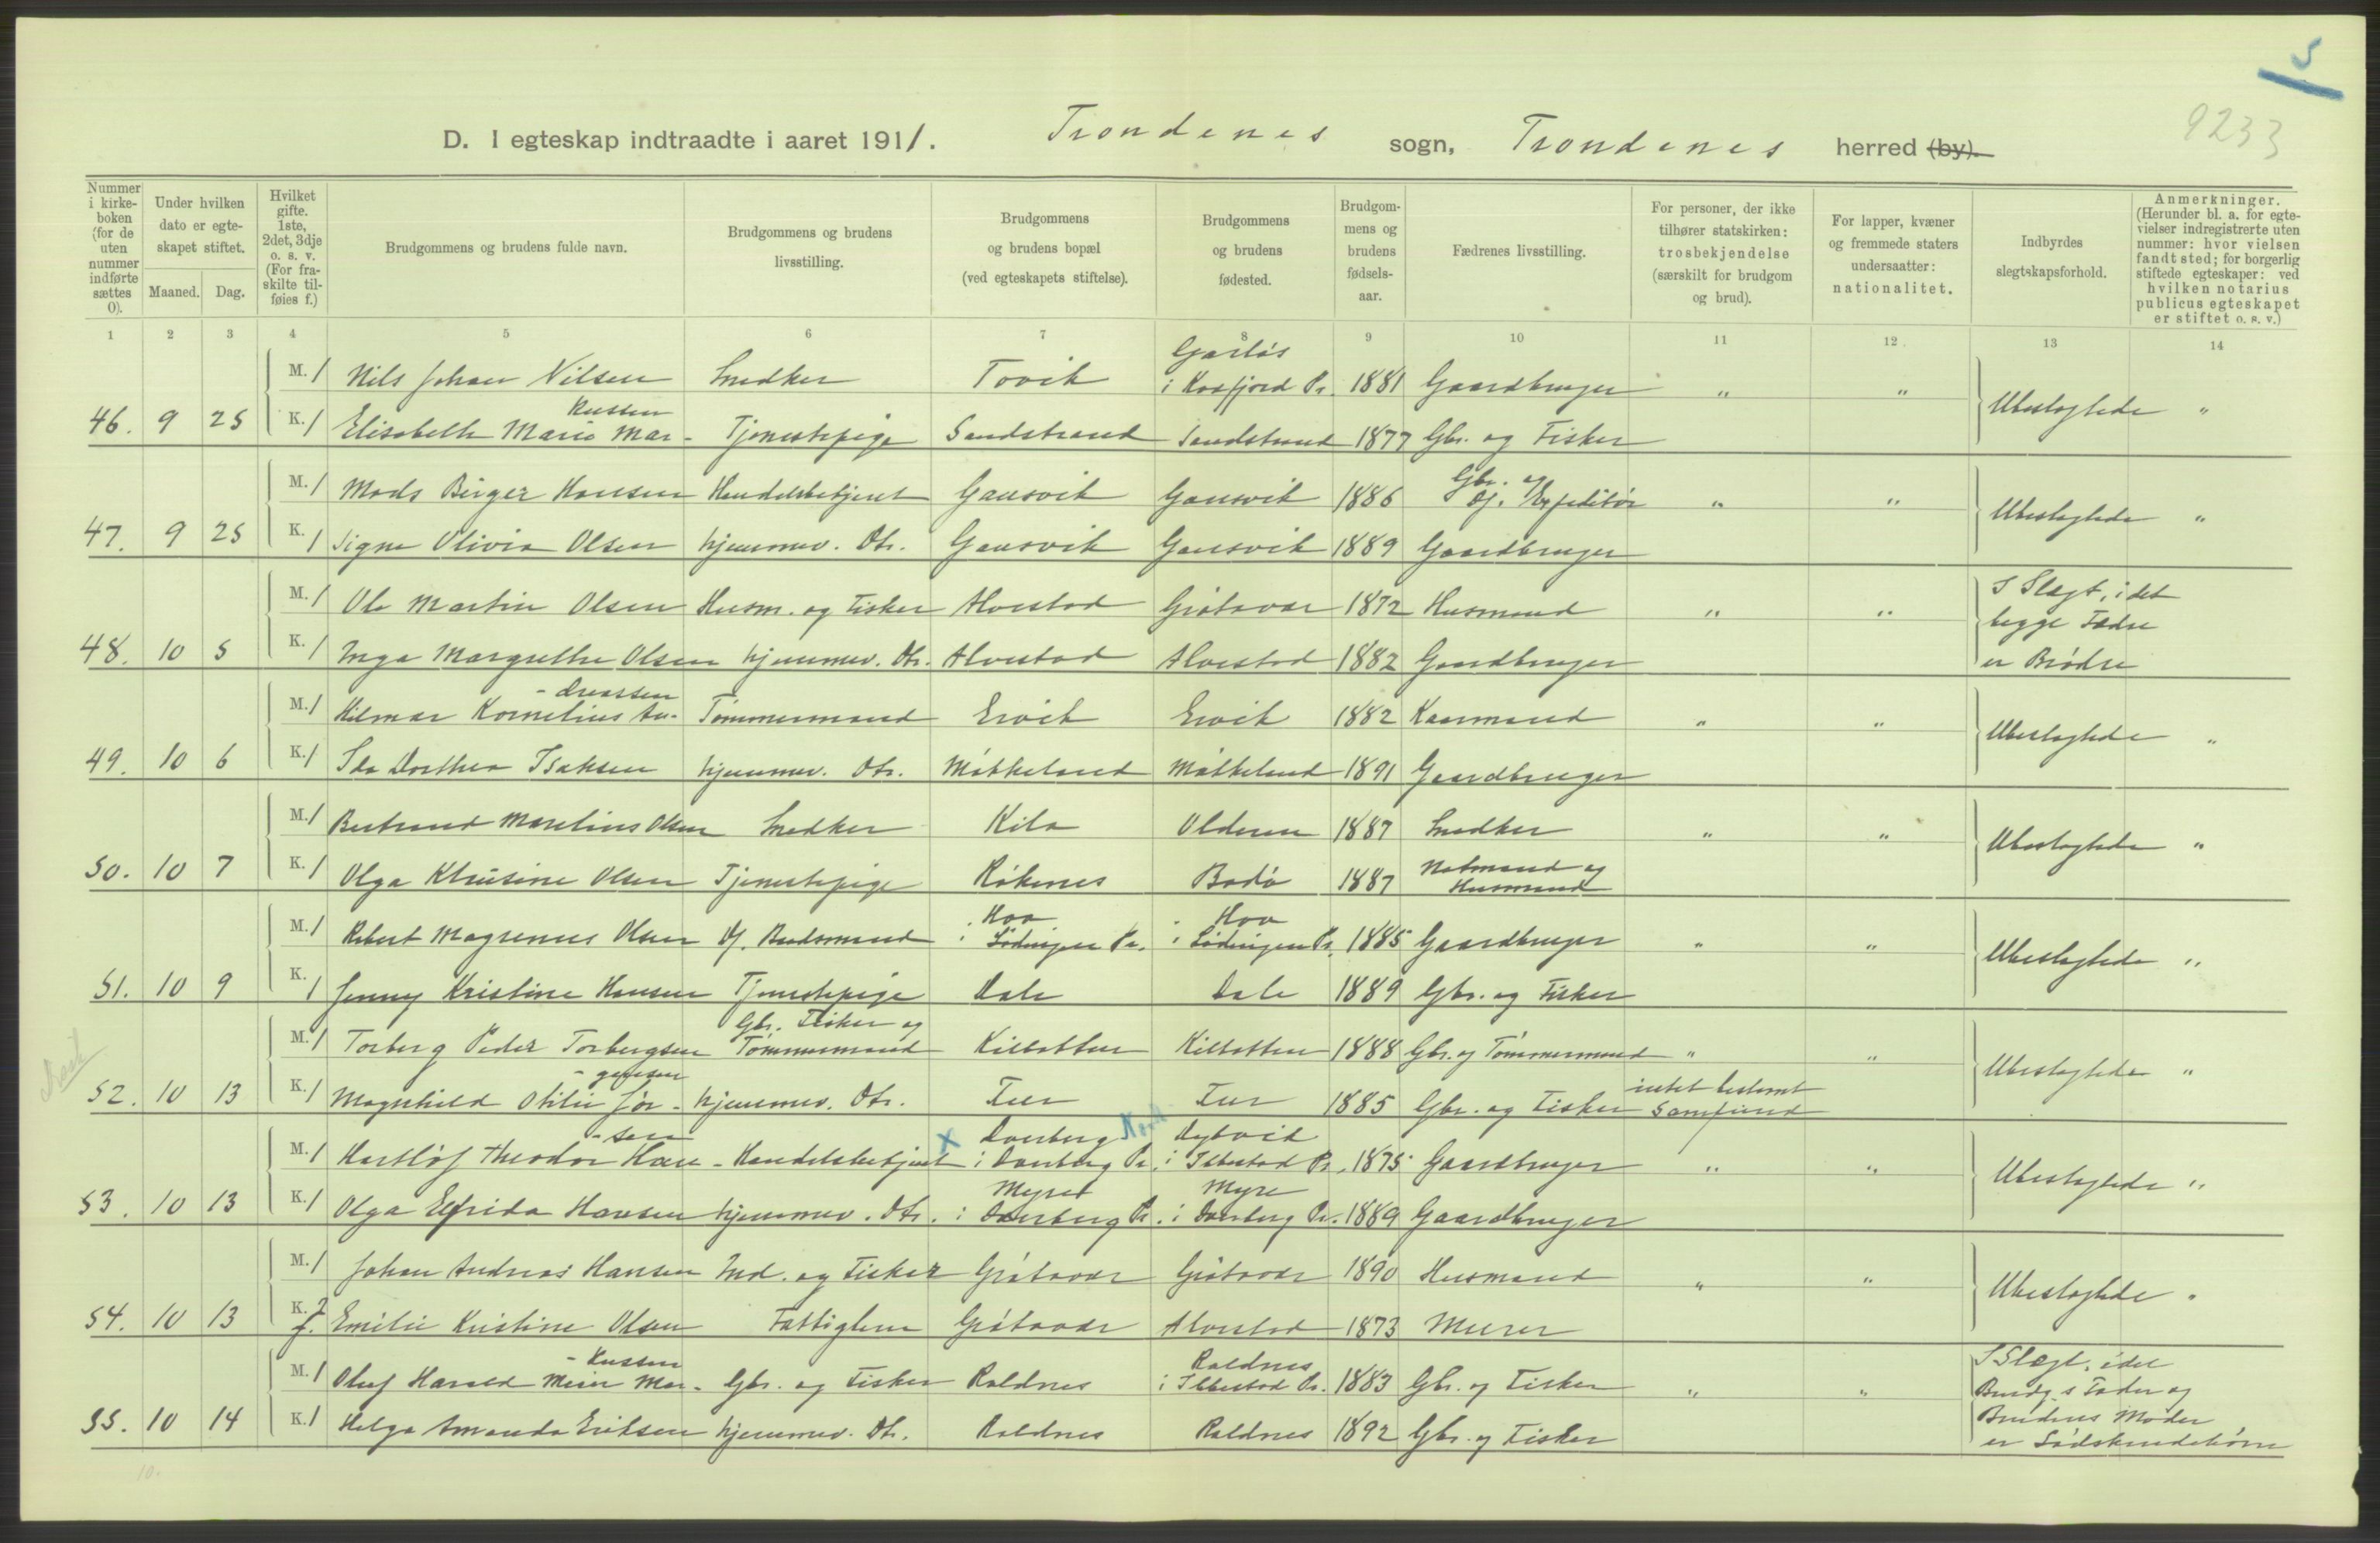 5
9233
D. I egteskap indtraadte i aaret 1911. Trondenes sogn, Trondenes herred (by).
Nummer i kirkeboken (for de uten nummer indførte sættes 0).
Under hvilken dato er egteskapet stiftet.
Maaned. Dag.
Hvilket gifte. 1ste, 2det, 3dje o. s. v. (For fraskilte tilføies f.)
Brudgommens og brudens fulde navn.
Brudgommens og brudens livsstilling.
Brudgommens og brudens bopæl (ved egteskapets stiftelse).
Brudgommens og brudens fødested.
Brudgommens og brudens fødselsaar.
Fædrenes livsstilling.
For personer, der ikke tilhører statskirken: trosbekjendelse (særskilt for brudgom og brud).
For lapper, kvæner og fremmede staters undersaatter: nationalitet.
Indbyrdes slegtskapsforhold.
Anmerkninger. (Herunder bl. a. for egtevielser indregistrerte uten nummer: hvor vielsen fandt sted; for borgerlig stiftede egteskaper: ved hvilken notarius publicus egteskapet er stiftet o. s. v.)
1 2 3 4 5 6 7 8 9 10 11 12 13 14
M. 1 Nils Johan Nilsen Snedker Tovik i Kvæfjord Pr. 1881 Gaardbruger " "
46. 9 25 K. 1 Elisabeth Marie Mar-kussen Tjenestepige Sandstrand Sandstrand 1877 Gbr. og Fisker Ubeslegtede "
M. 1 Mads Birger Hansen Handelsbetjent Gausvik Gausvik 1886 Gbr. og Df. Expeditør " "
47. 9 25 K. 1 Signe Olivia Olsen hjemmev. Dtr. Gausvik Gausvik 1889 Gaardbruger Ubeslegtede "
M. 1 Ole Martin Olsen Husm. og Fisker Alvestad Grøtavær 1872 Husmand " "
48. 10 5 K. 1 Inga Margrethe Olsen hjemmev. Dtr. Alvestad Alvestad 1882 Gaardbruger I Slegt, idet begge Fædre er Brødre
M. 1 Hilmar Kornelius An-dreassen Tømmermand Ervik Ervik 1882 Kaarmand " "
49. 10 6 K. 1 Ida Dorthea Isaksen hjemmev. Dtr. Møkkeland Møkkeland 1891 Gaardbruger Ubeslegtede "
M. 1 Bertrand Marelius Olsen Snedker Kila Olderen 1887 Snedker " "
50. 10 7 K. 1 Olga Klausine Olsen Tjenestepige Røkenes Bodø 1887 Notmand og Husmand Ubeslegtede "
M. 1 Robert Magnenus Olsen Df. Baadsmand Hov i Lødingen Pr. Hov i Lødingen Pr. 1885 Gaardbruger " "
51. 10 9 K. 1 Jenny Kristine Hansen Tjenestepige Dale Dale 1889 Gbr. og Fisker Ubeslegtede "
M. 1 Torberg Peder Torbergsen Gbr. Fisker og Tømmermand Kilbotten Kilbotten 1888 Gbr. og Tømmermand " "
52. 10 13 K. 1 Magnhild Otilie Jør-gensen hjemmev. Dtr. 1885 Gbr. og Fisker intet bestemt Samfund Ubeslegtede "
M. 1 Hartløf Theodor Han-sen Handelsbetjent x Dverberg i Dverberg Pr. i Ibbestad Pr. 1875 Gaardbruger " "
53. 10 13 K. 1 Olga Elfrida Hansen hjemmev. Dtr. Myre i Dverberg Pr. Myre i Dverberg Pr. 1889 Gaardbruger Ubeslegtede "
M. 1 Johan Andreas Hansen Ind. og Fisker Grøtavær Grøtavær 1890 Husmand " "
54. 10 13 K. 2 f. Emilie Kristine Olsen Fattiglem Grøtavær Alvestad 1873 Murer Ubeslegtede "
M. 1 Oluf Harald Meier Mar-kussen Gbr. og Fisker Roldnes Roldnes i Ibbestad Pr. 1883 Gbr. og Fisker " "
55. 10 14 K. 1 Helga Amanda Eriksen hjemmev. Dtr. Roldnes Roldnes 1892 Gbr. og Fisker I Slegt, idet Brudg.s Fader og Brudens Moder er Sødskendebørn
10.